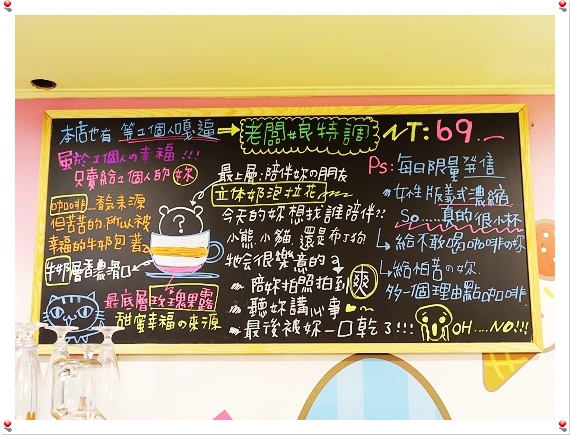 本店也有 等1個人嘎逼 → 老闆娘特調 NT:69.
屬於1個人の幸福!!!
只賣給1個人的妳
咖啡...香氣來源
但苦苦的.所以被
幸福的牛奶包著
牛奶層香濃滑口
最底層玫瑰果露
甜蜜幸福の來源
最上層:陪伴妳の朋友
立体奶泡拉花
今天的妳想找誰陪伴??
小熊.小貓 還是布丁狗
牠会很樂意的
陪妳拍照拍到爽
聽妳講心事
最後被妳一口乾了!!!
Ps:每日限量發售
女性版義式濃縮
So.....真的很小杯
給不敢喝咖啡の妳
給怕苦の妳
多一個理由點咖啡
OH....NO!!!